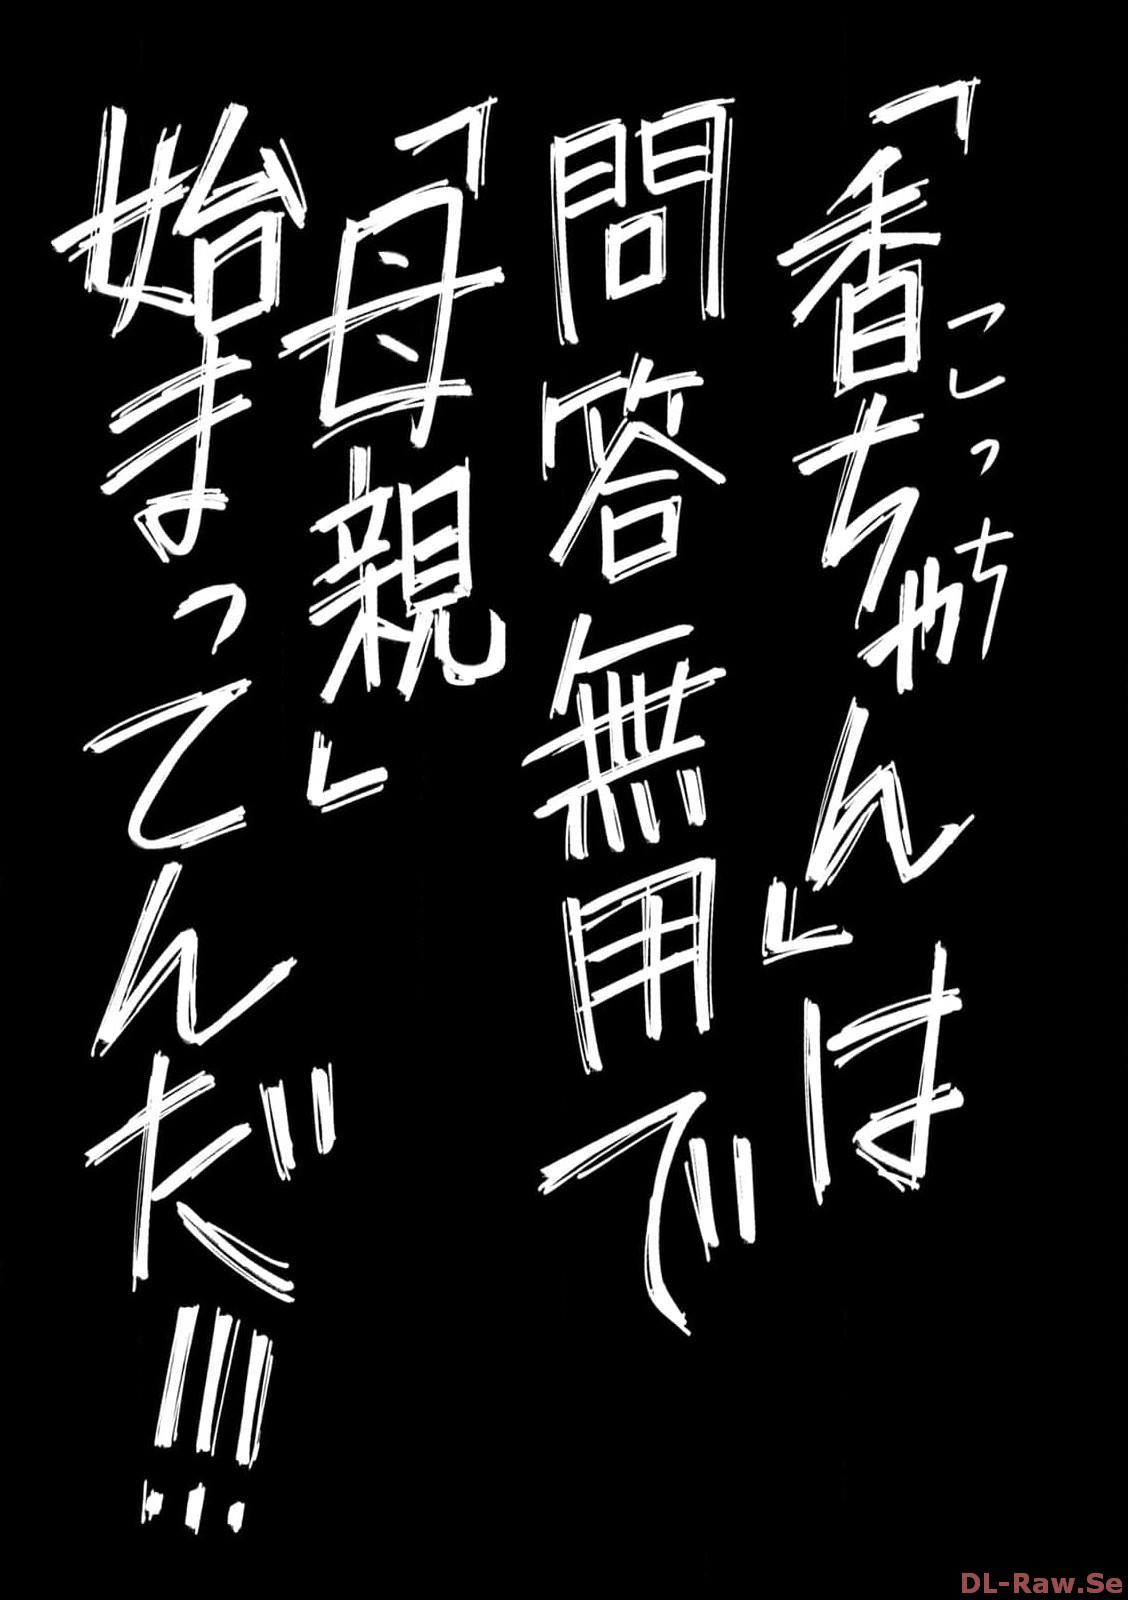 「香ちゃん」は
こっち
問答無用で
「母親」
始まってんだ!!!
DL-Raw.Se